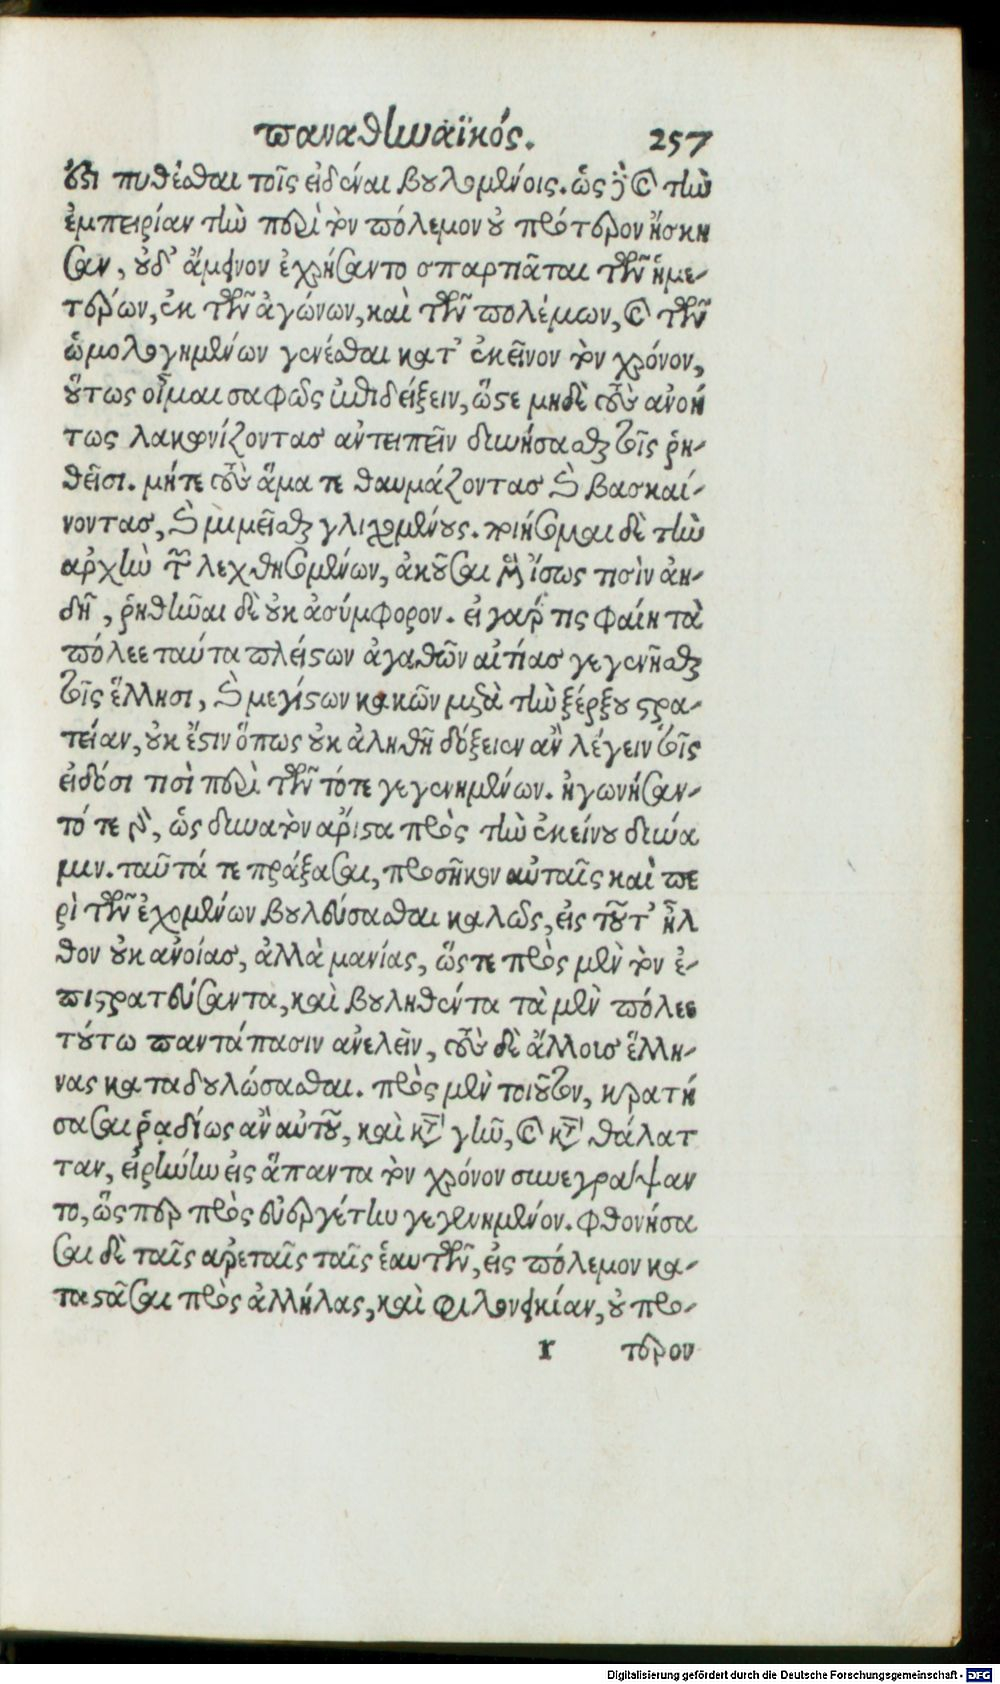 παναθηναϊκός. 257
ἔστι πυθέσθαι τοῖς εἰδέναι βουλομένοις. ὡς δὲ καὶ τὴν
ἐμπειρίαν τὴν περὶ τὸν πόλεμον οὐ πρότερον ἤσκη
σαν, οὐδ' ἄμεινον ἐχρήσαντο σπαρτιᾶται τῶν ἡμε-
τέρων, ἐκ τῶν ἀγώνων, καὶ τῶν πολέμων, καὶ τῶν
ὡμολογημένων γενέσθαι κατ' ἐκεῖνον τὸν χρόνον,
οὕτως οἶμαι σαφῶς ἐπιδείξειν, ὥστε μηδὲ τοὺς ἀνοή
τως λακωνίζοντας ἀντειπεῖν δυνήσασθαι τοῖς ῥη-
θεῖσι. μήτε τοὺς ἅμα τε θαυμάζοντας καὶ βασκαί-
νοντας, καὶ μιμεῖσθαι γλιχομένους. ποιήσομαι δὲ τὴν
ἀρχὴν τῶν λεχθησομένων, ἀκοῦσαι μὲν ἴσως τισὶν ἀη-
δῆ, ῥηθῆναι δὲ οὐκ ἀσύμφορον. εἰ γάρ τις φαίη τὰ
πόλεε ταύτα πλείστων ἀγαθῶν αἰτίας γεγενῆσθαι
τοῖς ἕλλησι, καὶ μεγίστων κακῶν μετὰ τὴν ξέρξου στρα-
τείαν, οὐκ ἔστιν ὅπως οὐκ ἀληθῆ δόξειεν ἂν λέγειν τοῖς
εἰδόσι τισὶ περὶ τῶν τότε γεγενημένων. ἠγωνήσαν-
τό τε γὰρ, ὡς δυνατὸν ἄριστα πρὸς τὴν ἐκείνου δύνα
μιν. ταῦτά τε πράξασαι, προσῆκον αὐταῖς καὶ πε
ρὶ τῶν ἐχομένων βουλεύσασθαι καλῶς, εἰς τοῦτ' ἦλ
θον οὐκ ἀνοίας, ἀλλὰ μανίας, ὥστε πρὸς μὲν τὸν ἐ-
πιστρατεύσαντα, καὶ βουληθέντα τὰ μὲν πόλεε
τούτω παντάπασιν ἀνελεῖν, τοὺς δὲ ἄλλους ἕλλη-
νας καταδουλώσασθαι. πρὸς μὲν τοιοῦτον, κρατή
σασαι ῥᾳδίως ἂν αὐτοῦ, καὶ κατὰ γῆν, καὶ κατὰ θάλατ
ταν, εἰρήνην εἰς ἅπαντα τὸν χρόνον συνεγράψαν
το, ὥσπερ πρὸς εὐεργέτην γεγενημένον. φθονήσα
σαι δὲ ταῖς ἀρεταῖς ταῖς ἑαυτῶν, εἰς πόλεμον κα-
ταστᾶσαι πρὸς ἀλλήλας, καὶ φιλονεικίαν, οὐ πρό-
r τερον
Digitalisierung gefördert durch die Deutsche Forschungsgemeinschaft - DFG